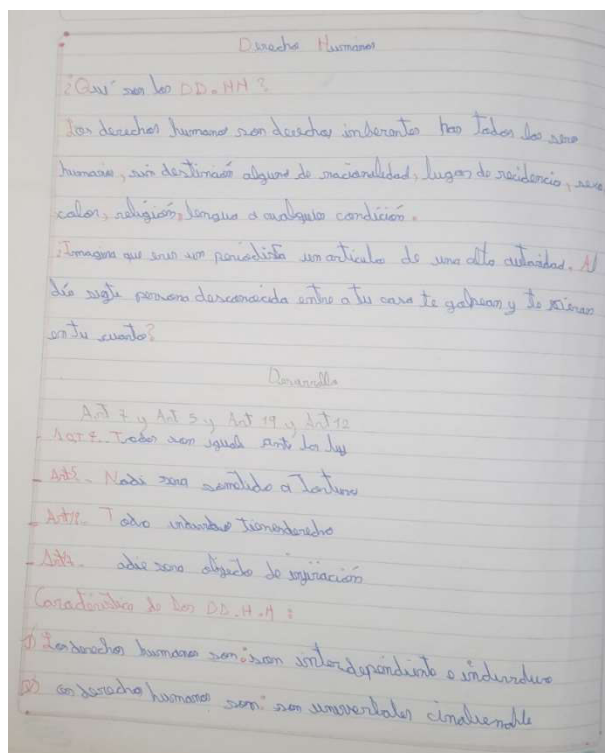 Derecho Humanos
¿Qué son los DD.HH?
Los derechos humanos son derechos inherantes han Todos los seres
humanos, sin destinción alguna de nacionalidad, lugar de recidencia, sexo
color, religión, lengua o cualquier condición.
¡Imagina que eres un periodista un articulo de una alta autoridad. Al
día sigte persona desconocida entre a tu casa te golpean y te
en tu cuarto?
Desarrollo
Art 7 y Art 5 y Art 19 y Art 12
- Art 7. Todos son iguals ante la ley
- Art 5. Nadi sera sometido a Tortura
- Todo tienenderecho
- adie sera de
Caracteristica de los DD.H.H :
1) Los derechos humanos son: son interdependiente e
2) os derecho humanos son: son cinalienable